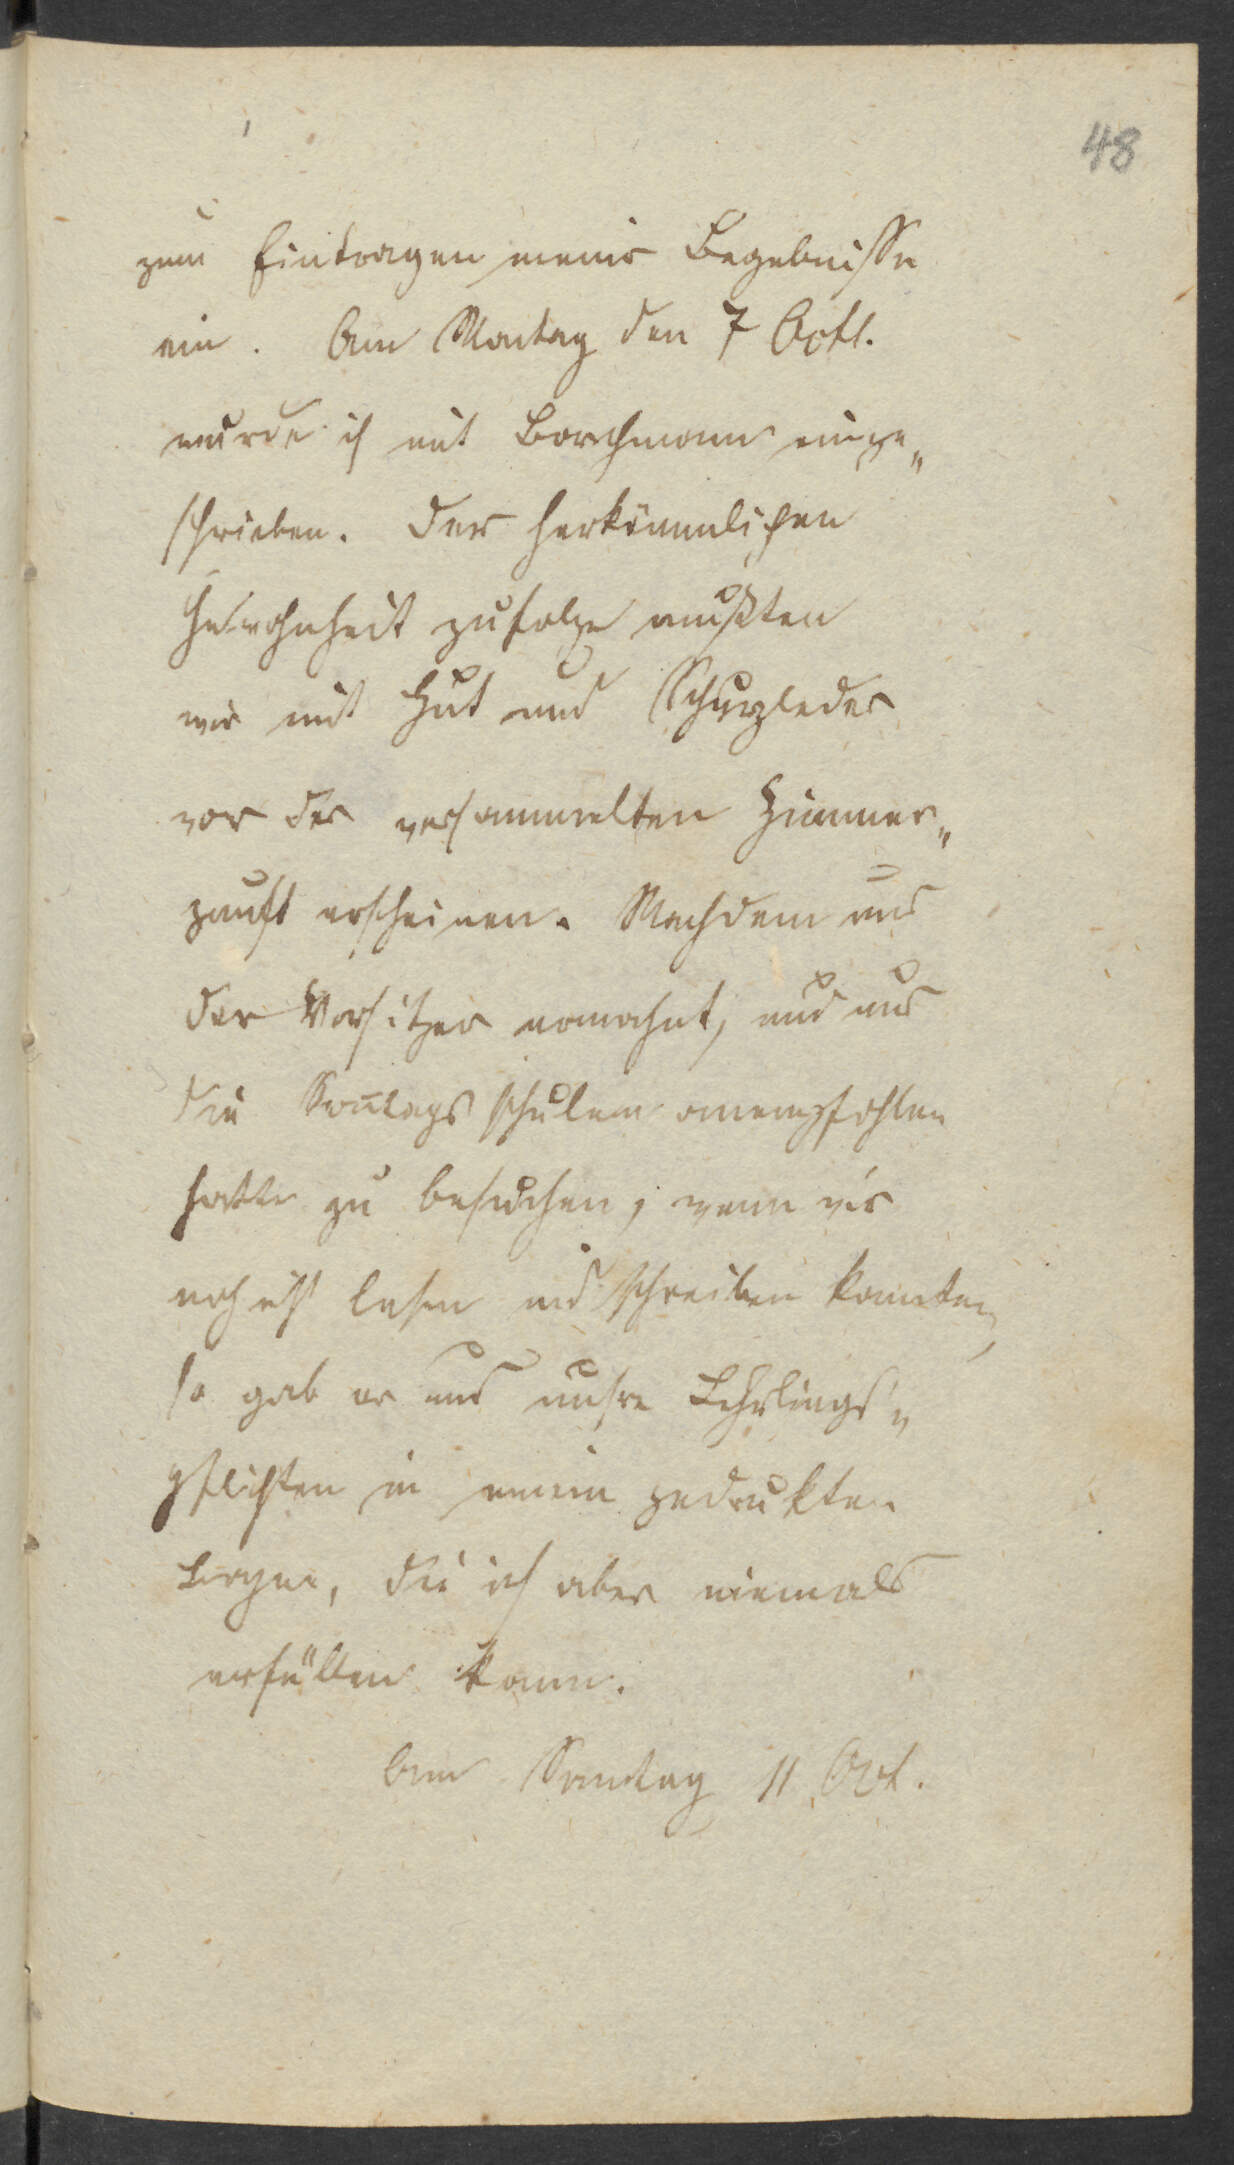 48
zum Eintragen meiner Begebnisse
ein. Am Montag den 7 Octb.
wurde ich mit Borchmann einge„
schrieben. Der herkömmlichen
Gewohnheit zufolge mußten
wir mit Hut und Schurzleder
vor der versammelten Zimmer„
zunft erscheinen. Nachdem uns
der Vorsitzer ermahnt, und uns
die Sontags schulen anempfohlen
hatte zu besuchen, wenn wir
noch nicht lesen und schreiben konnten,
so gab er uns unsre Lehrlings„
pflichten in einem gedrukten
Bogen, die ich aber niemals
erfüllen kann.
Am Sontag 11 Oct.